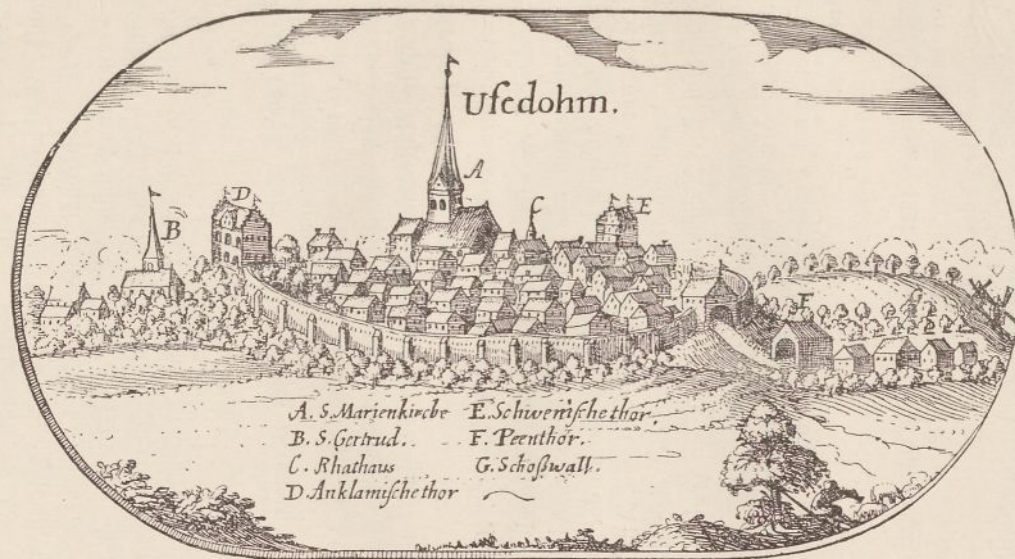 Uſedohm.
A
B
C
D
E
F
A. S. Marienkirche
B. S. Gertrud.
C. Rhathaus
D. Anklamiſche thor
E. Schweniſche thor
F. Peenthor.
G. Schoßwall.